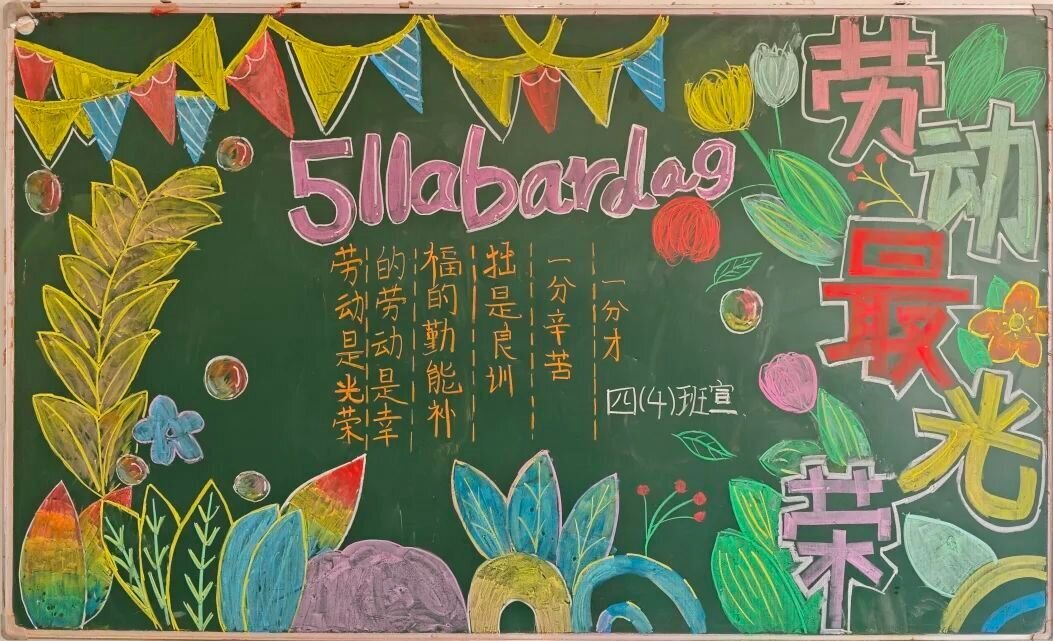 51labardag
劳动是光荣
的劳动是幸
福的勤能补
拙是良训
一分辛苦
一分才
四(4)班宣
劳动最光荣